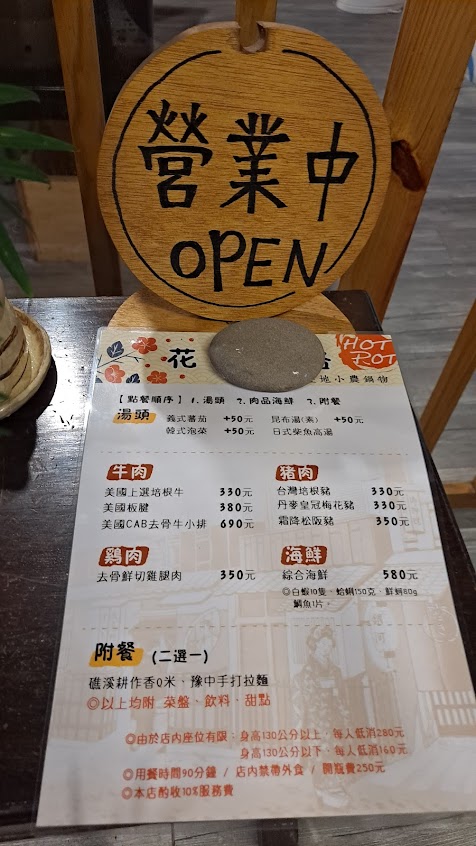 營業中
OPEN
花
HOT
POT
地小農鍋物
【點餐順序】1.湯頭 2.肉品海鮮 3.附餐
湯頭 義式番茄 +50元 昆布湯(素) +50元
韓式泡菜 +50元 日式柴魚高湯
牛肉
美國上選培根牛 330元
美國板腱 380元
美國CAB去骨牛小排 690元
豬肉
台灣培根豬 330元
丹麥皇冠梅花豬 330元
霜降松阪豬 350元
鷄肉
去骨鮮切雞腿肉 350元
海鮮
綜合海鮮 580元
◎白蝦10隻、蛤蜊150克、鮮蚵80g
鯛魚1片。
附餐 (二選一)
礁溪耕作香Q米、豫中手打拉麵
◎以上均附 菜盤、飲料、甜點
◎由於店內座位有限：身高130公分以上，每人低消280元
身高130公分以下，每人低消160元
◎用餐時間90分鐘 / 店內禁帶外食 / 開瓶費250元
◎本店酌收10%服務費